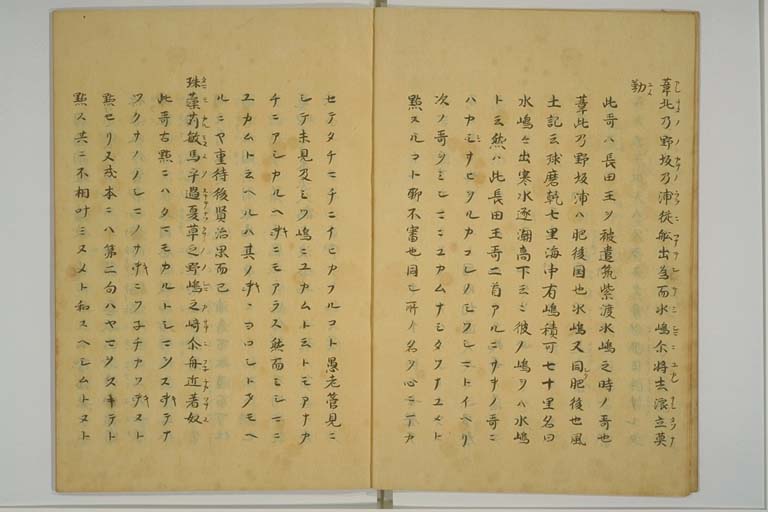 葦北乃野坂乃浦従舩出為而水嶋尓将去浪立莫
勤
此哥ハ長田王ヲ被遣筑紫渡水嶋之時ノ哥也
葦北乃野坂浦ハ肥後国也水嶋又同肥後也風
土記云球磨乾七里海中有嶋積可七十里名曰
水嶋々出寒水逐潮高下云々彼ノ嶋ヲハ水嶋
ト云然ハ此長田王哥二首アルニサキノ哥ニ
次ノ哥ヲミシマニユカムナミタツナユメト
點スルコト聊不審也同シ所ノ名ヲ心ニマカ
セテタチマチニナヒカフルコト愚老管見ニ
シテ未見及ミツ嶋ニユカムトヨミトモアナカ
チニアシカルヘキニモアラス然而ミシマニ
ユカムト云ヘルハ其ノキヽヨロシトタモヘ
ルニヤ重待後賢治罘而已
珠藻苅敏馬乎過夏草之野嶋之﨑尓舟近著奴
此哥古點ニハタマモカルトシマヲスキテナ
ツクサノノシマノサキニワ子チカツキヌト
點セリ又或本ニハ第二句ハヤマヲスキテト
點ス共ニ不相叶ミヌメト和スヘシムトヌト